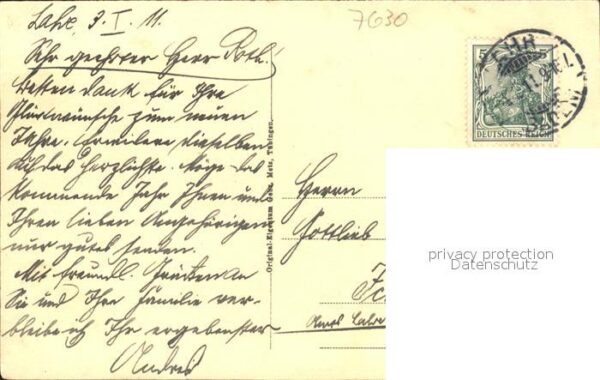 Lahr, 3. I. 11.
7630
Sehr geehrter Herr Roth!
Besten Dank für Ihre
Glückwünsche zum neuen
Jahre. Erwidere dieselben
auf das Herzlichste. Möge das
kommende Jahr Ihnen und
Ihren lieben Angehörigen
nur gutes senden.
Mit freundl. Grüßen an
Sie und Ihre Familie ver-
bleibe ich Ihr ergebenster
Andres
Original-Eigentum Gebr. Metz, Tübingen.
DEUTSCHES REICH
Herrn
Gottlieb
Amt Lahr
privacy protection
Datenschutz